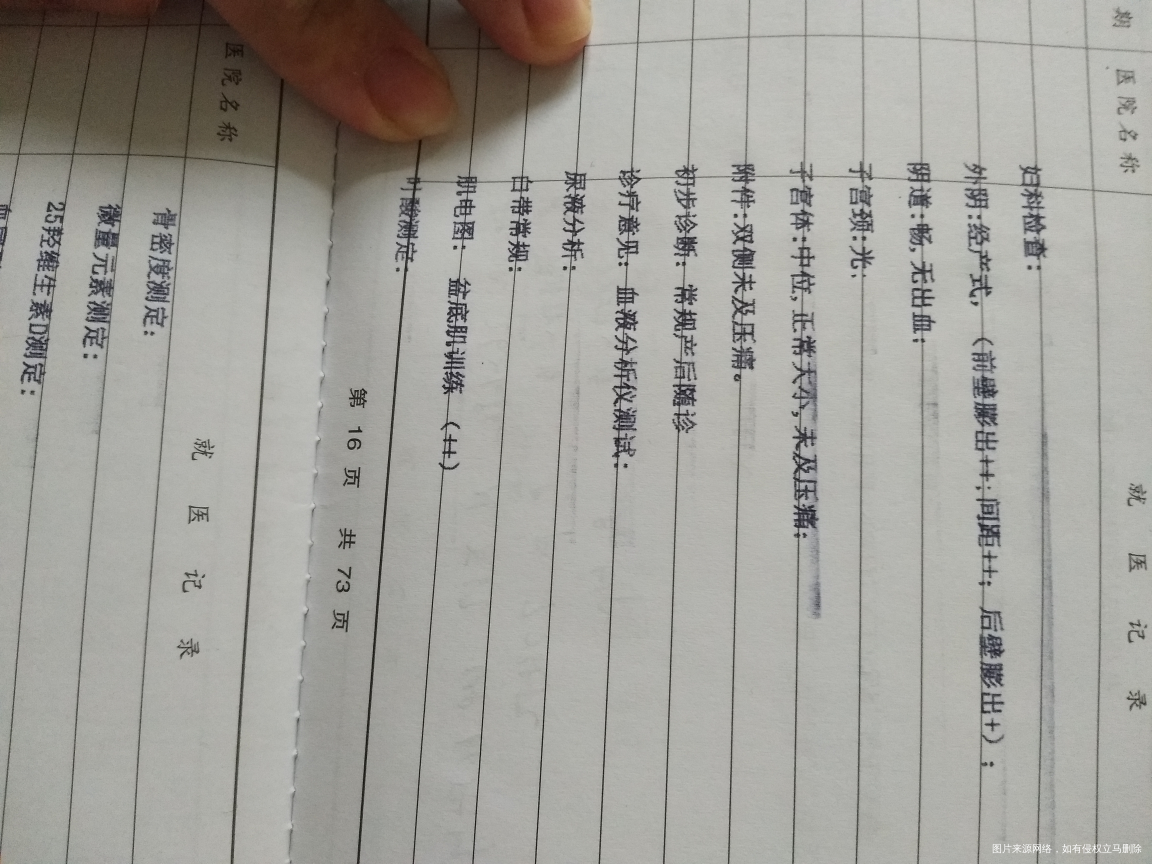 期 医院名称 就医记录
妇科检查：
外阴:经产式，（前壁膨出++；间距++；后壁膨出+）；
阴道:畅,无出血；
子宫颈:光；
子宫体:中位,正常大小,未及压痛；
附件:双侧未及压痛。
初步诊断：常规产后随诊
诊疗意见：血液分析仪测试：
尿液分析：
白带常规：
肌电图：盆底肌训练（++）
叶酸测定：
第 16 页 共 73 页
医院名称 就医记录
骨密度测定：
微量元素测定：
25羟维生素D测定：
图片来源网络，如有侵权立马删除